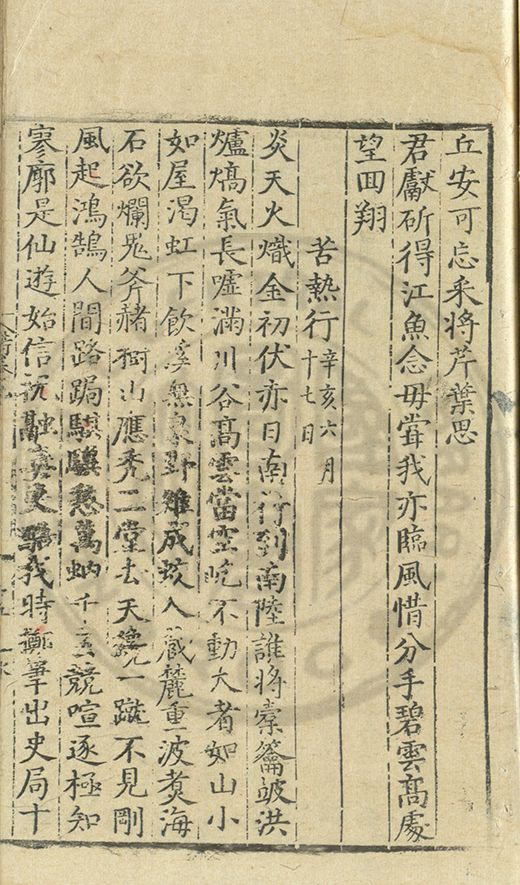 丘安可忘采將芹葉思
君獻斫得江魚念毋甞我亦臨風惜分手碧雲高處
望囬翔
苦熱行辛亥六月
十七日
炎天火熾金初伏亦日南行到南陸誰將橐籥皷洪
爐熇氣長噓滿川谷高雲當空屹不動大者如山小
如屋渴虹下飲溪無泉野雉成蛟入藏麓重波煑海
石欲爛鬼斧赭樹山應禿二堂去天纔一蹴不見剛
風起鴻鵠人間路跼騏驥愁萬蚋千競喧逐極知
寥廓是仙遊始信祝融更我時筆出史局十